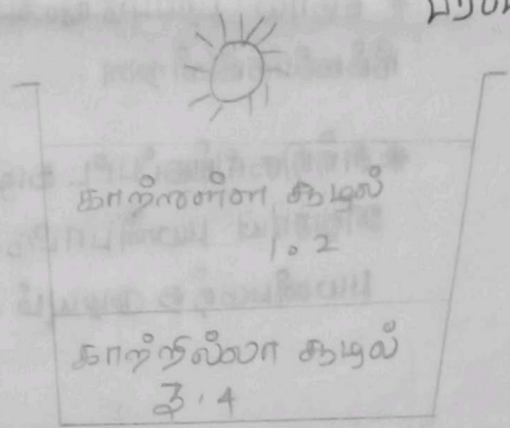 காற்றுள்ள சூழல்
1. 2
காற்றில்லா சூழல்
3. 4